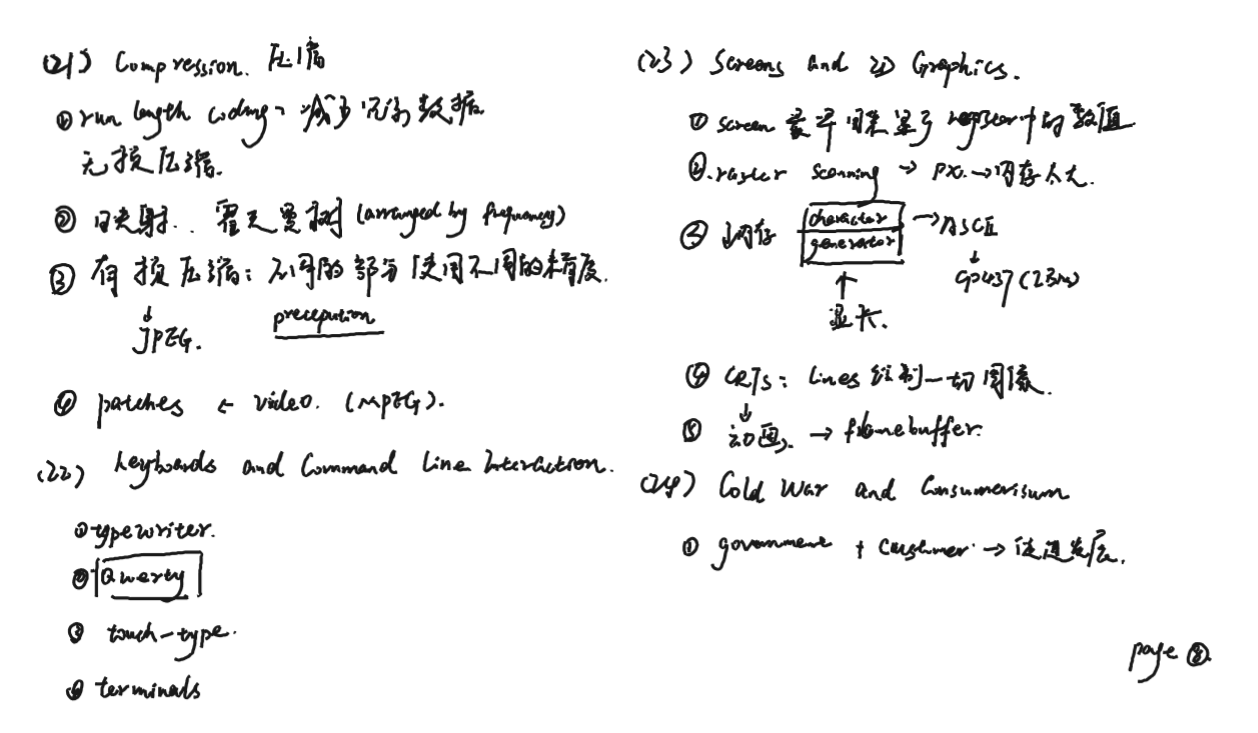 (21) Compression. 压缩
① run length coding → 减少冗余数据
无损压缩.
② 映射.. 霍夫曼树 (arranged by frequency)
③ 有损压缩: 不同的部分使用不同的精度.
↓
JPEG. preception
④ patches ← video. (MPEG).
(22) keyboards and Command Line Interaction.
① typewriter.
② Qwerty
③ touch-type.
④ terminals
(23) Screens and 2D Graphics.
① screen 最早用来显示 register中的数值
② raster scanning → px. → 内存太大.
③ ↓内存 character generator → ASCII
↓
CP437
↑
显卡.
④ CRTs: Lines 绘制一切图像.
↓
⑤ 动画. → framebuffer.
(24) Cold War and Consumerisum
① government + customer → 促进发展.
page ⑧.